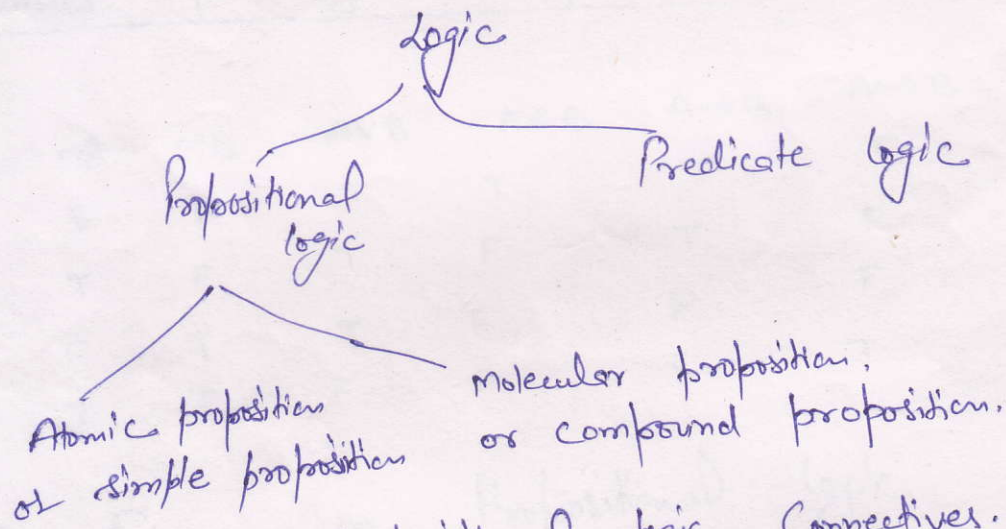 Logic
Propositional
logic
Predicate logic
Atomic proposition
or simple proposition
Molecular proposition.
or compound proposition.
logic Connectives.